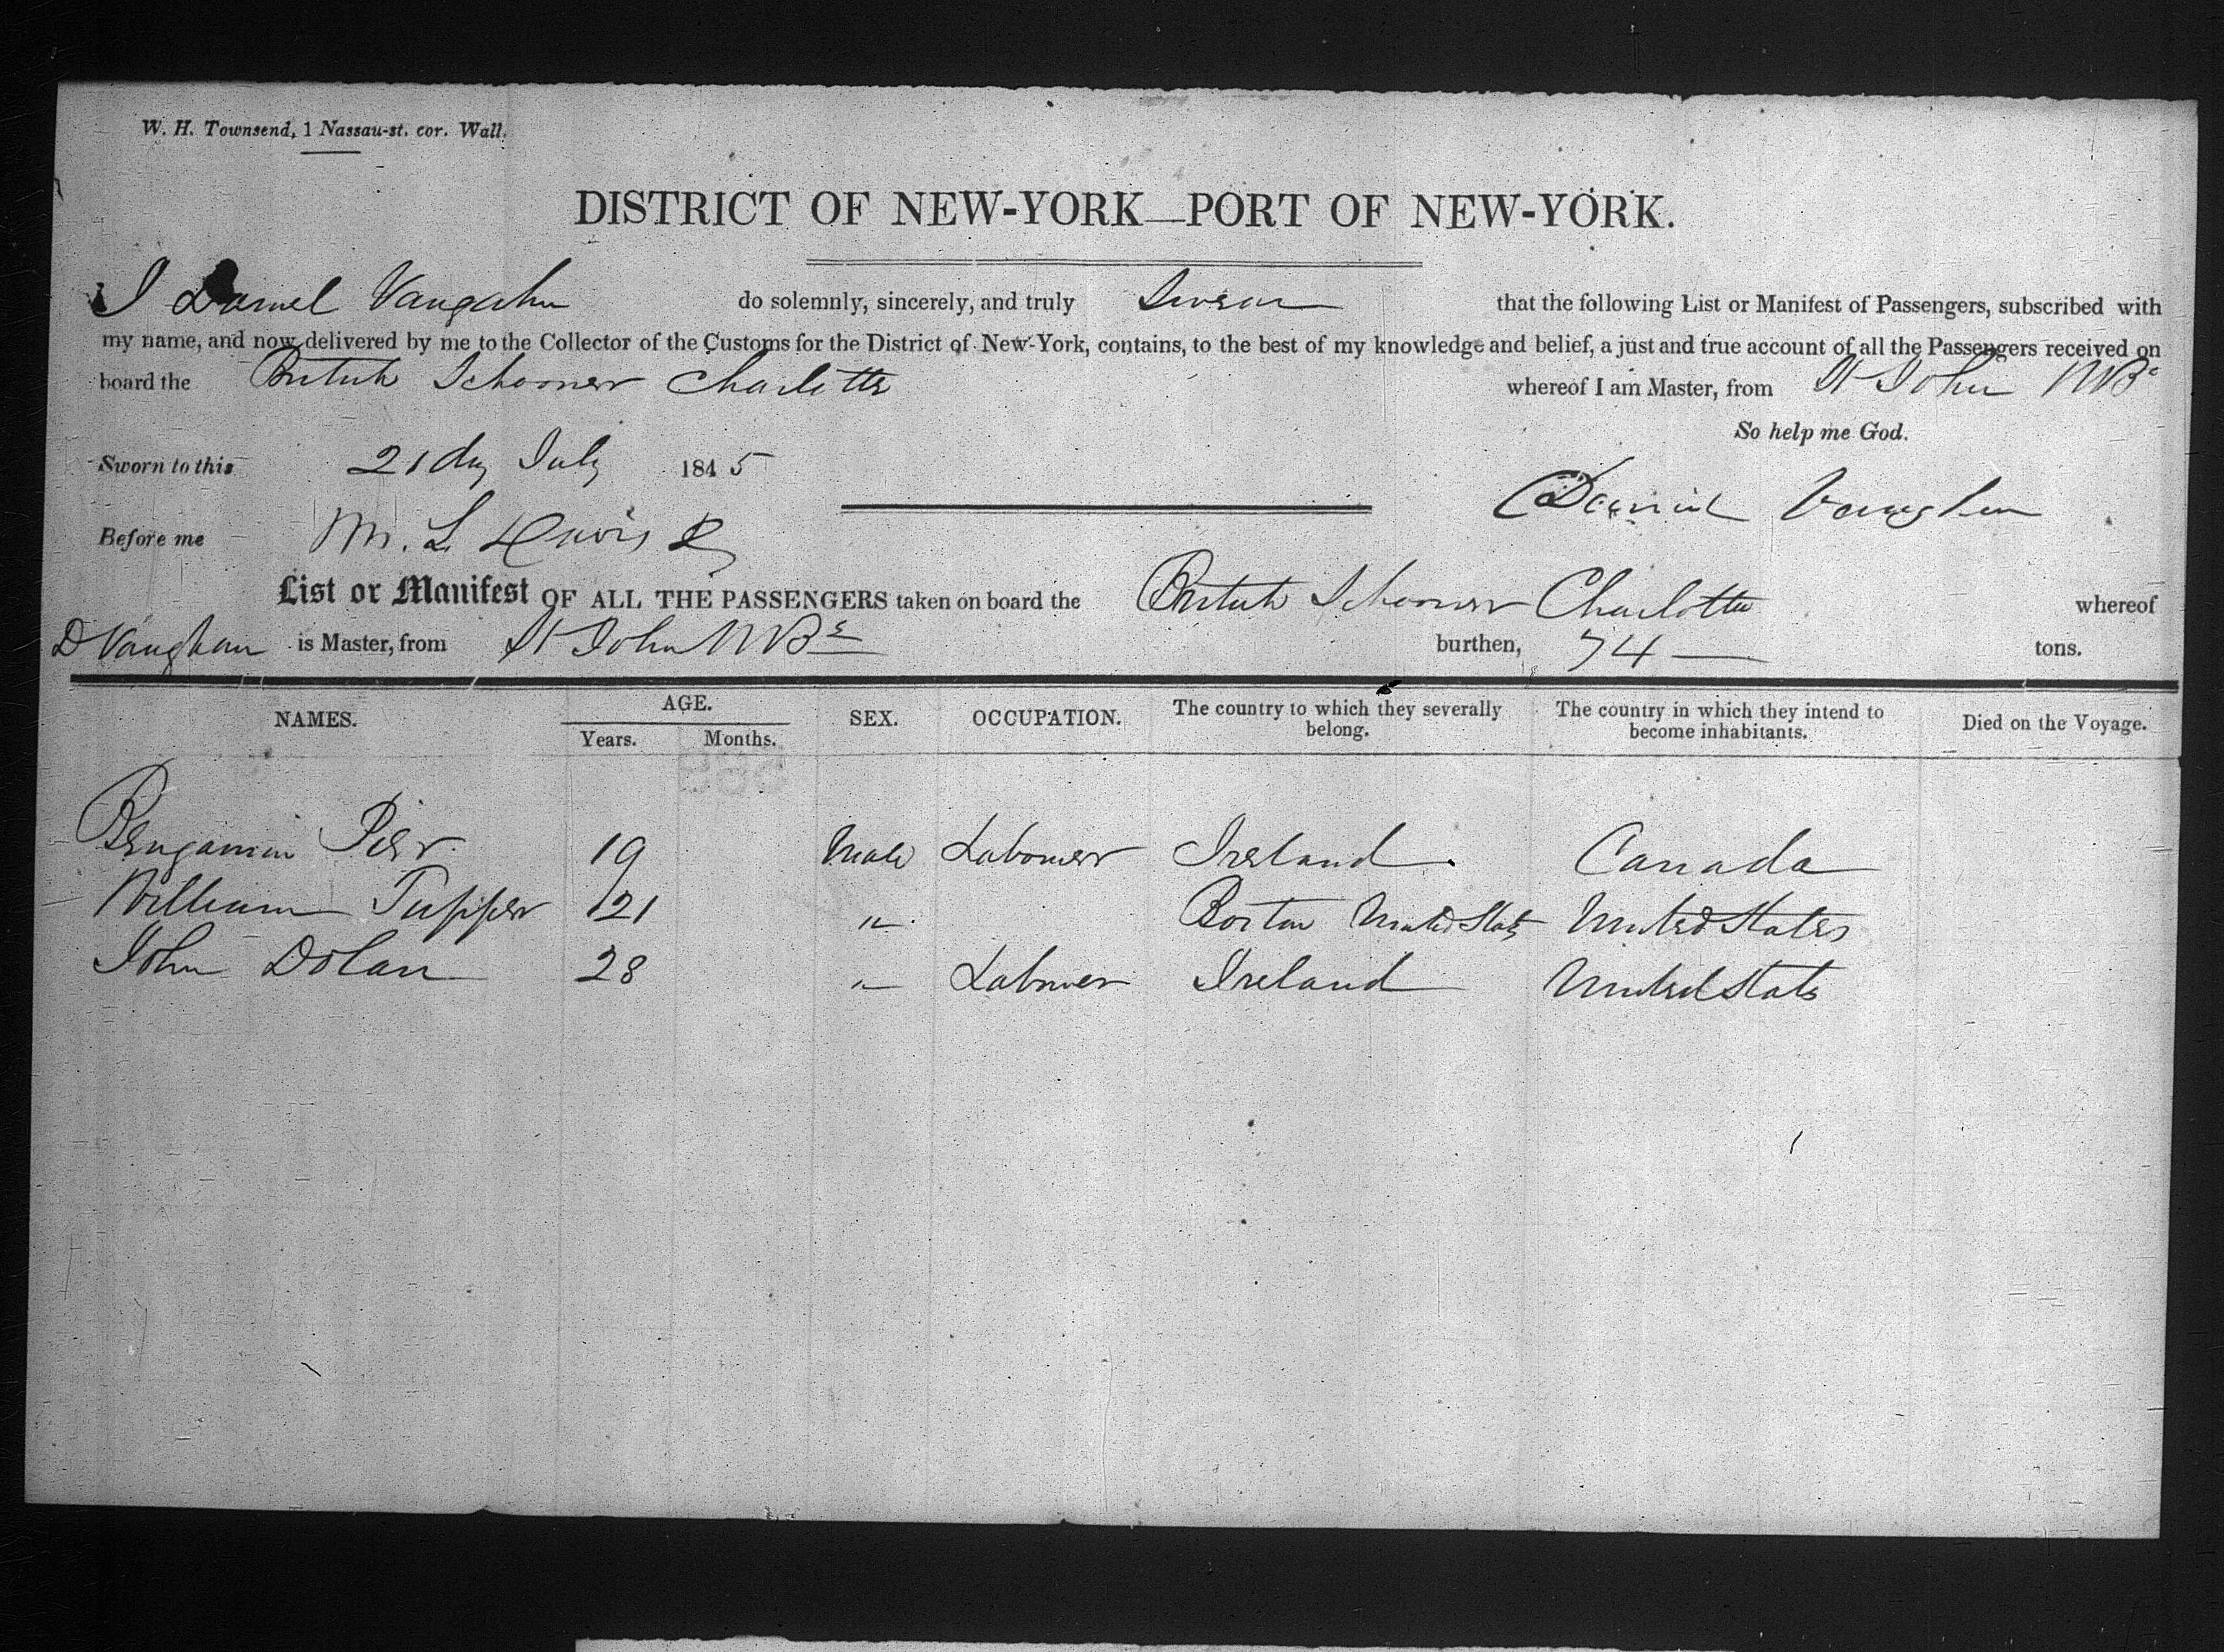 W. H. Townsend, 1 Nassau-st. cor. Wall.
DISTRICT OF NEW-YORK—PORT OF NEW-YORK.
I Daniel Vangahn do solemnly, sincerely, and truly Swear that the following List or Manifest of Passengers, subscribed with
my name, and now delivered by me to the Collector of the Customs for the District of New-York, contains, to the best of my knowledge and belief, a just and true account of all the Passengers received on
board the British Schooner Charlotte whereof I am Master, from St John NB
So help me God.
Sworn to this 21 day July 1845
Daniel Vaughan
Before me M. L. Davis
List or Manifest OF ALL THE PASSENGERS taken on board the British Schooner Charlotte whereof
D Vaughan is Master, from St John NB burthen, 74 tons.
NAMES. AGE. SEX. OCCUPATION. The country to which they severally belong. The country in which they intend to become inhabitants. Died on the Voyage.
Years. Months.
Bengamin 19 Male Labourer Ireland Canada
William Tupper 21 " Boston United States United States
John Dolan 28 " Labourer Ireland United States